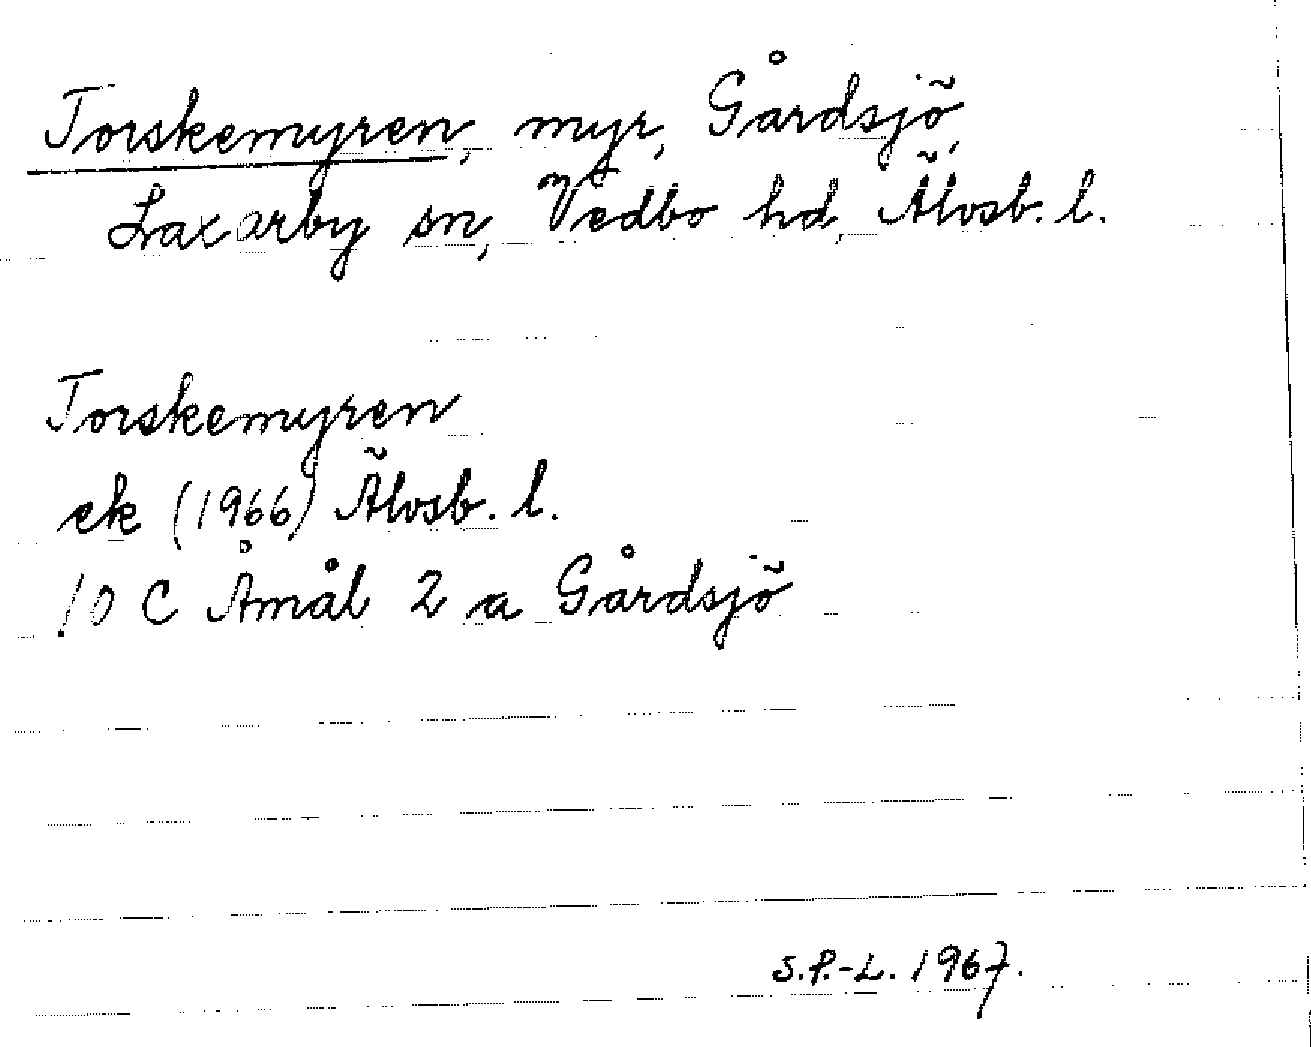 Torskemyren, myr, Gårdsjö,
Laxarby sn, Vedbo hd, Älvsb. l.
Torskemyren
ek (1966) Älvsb. l.
10 C Åmål 2 a Gårdsjö
S.P.-L. 1967.